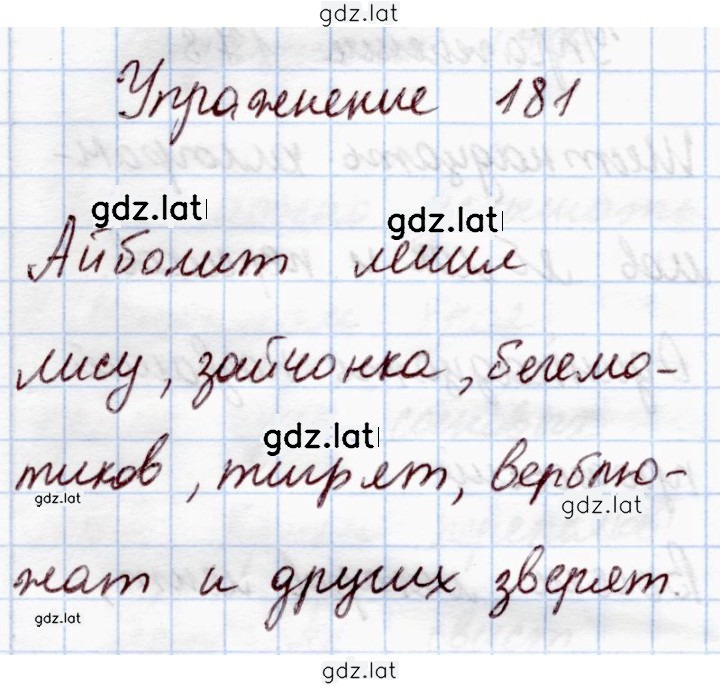 gdz.lat
Упражнение 181
gdz.lat gdz.lat
Айболит лечил
лису, зайчонка, бегемо-
gdz.lat
тиков, тигрят, верблю-
gdz.lat gdz.lat
жат и других зверят.
gdz.lat
gdz.lat